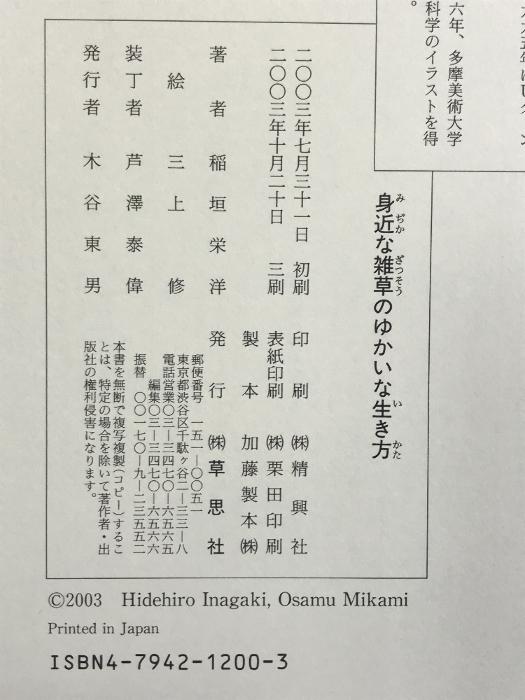 六年、多摩美術大学
科学のイラストを得
。
身近な雑草のゆかいな生き方
み ぢか ざっそう い かた
二〇〇三年七月三十一日 初刷
二〇〇三年十月二十日 三刷
著者 稲垣栄洋
絵 三上修
装丁者 芦澤泰偉
発行者 木谷東男
印刷 ㈱精興社
表紙印刷 ㈱栗田印刷
製本 加藤製本㈱
発行 ㈱草思社
郵便番号 一五一―〇〇五一
東京都渋谷区千駄ヶ谷二―三三―八
電話営業〇三―三四七〇―六五六五
編集〇三―三四七〇―六五六六
振替 〇〇一七〇―九―二三五五二
本書を無断で複写複製(コピー)するこ
とは、特定の場合を除いて著作者・出
版社の権利侵害になります。
©2003 Hidehiro Inagaki, Osamu Mikami
Printed in Japan
ISBN4-7942-1200-3